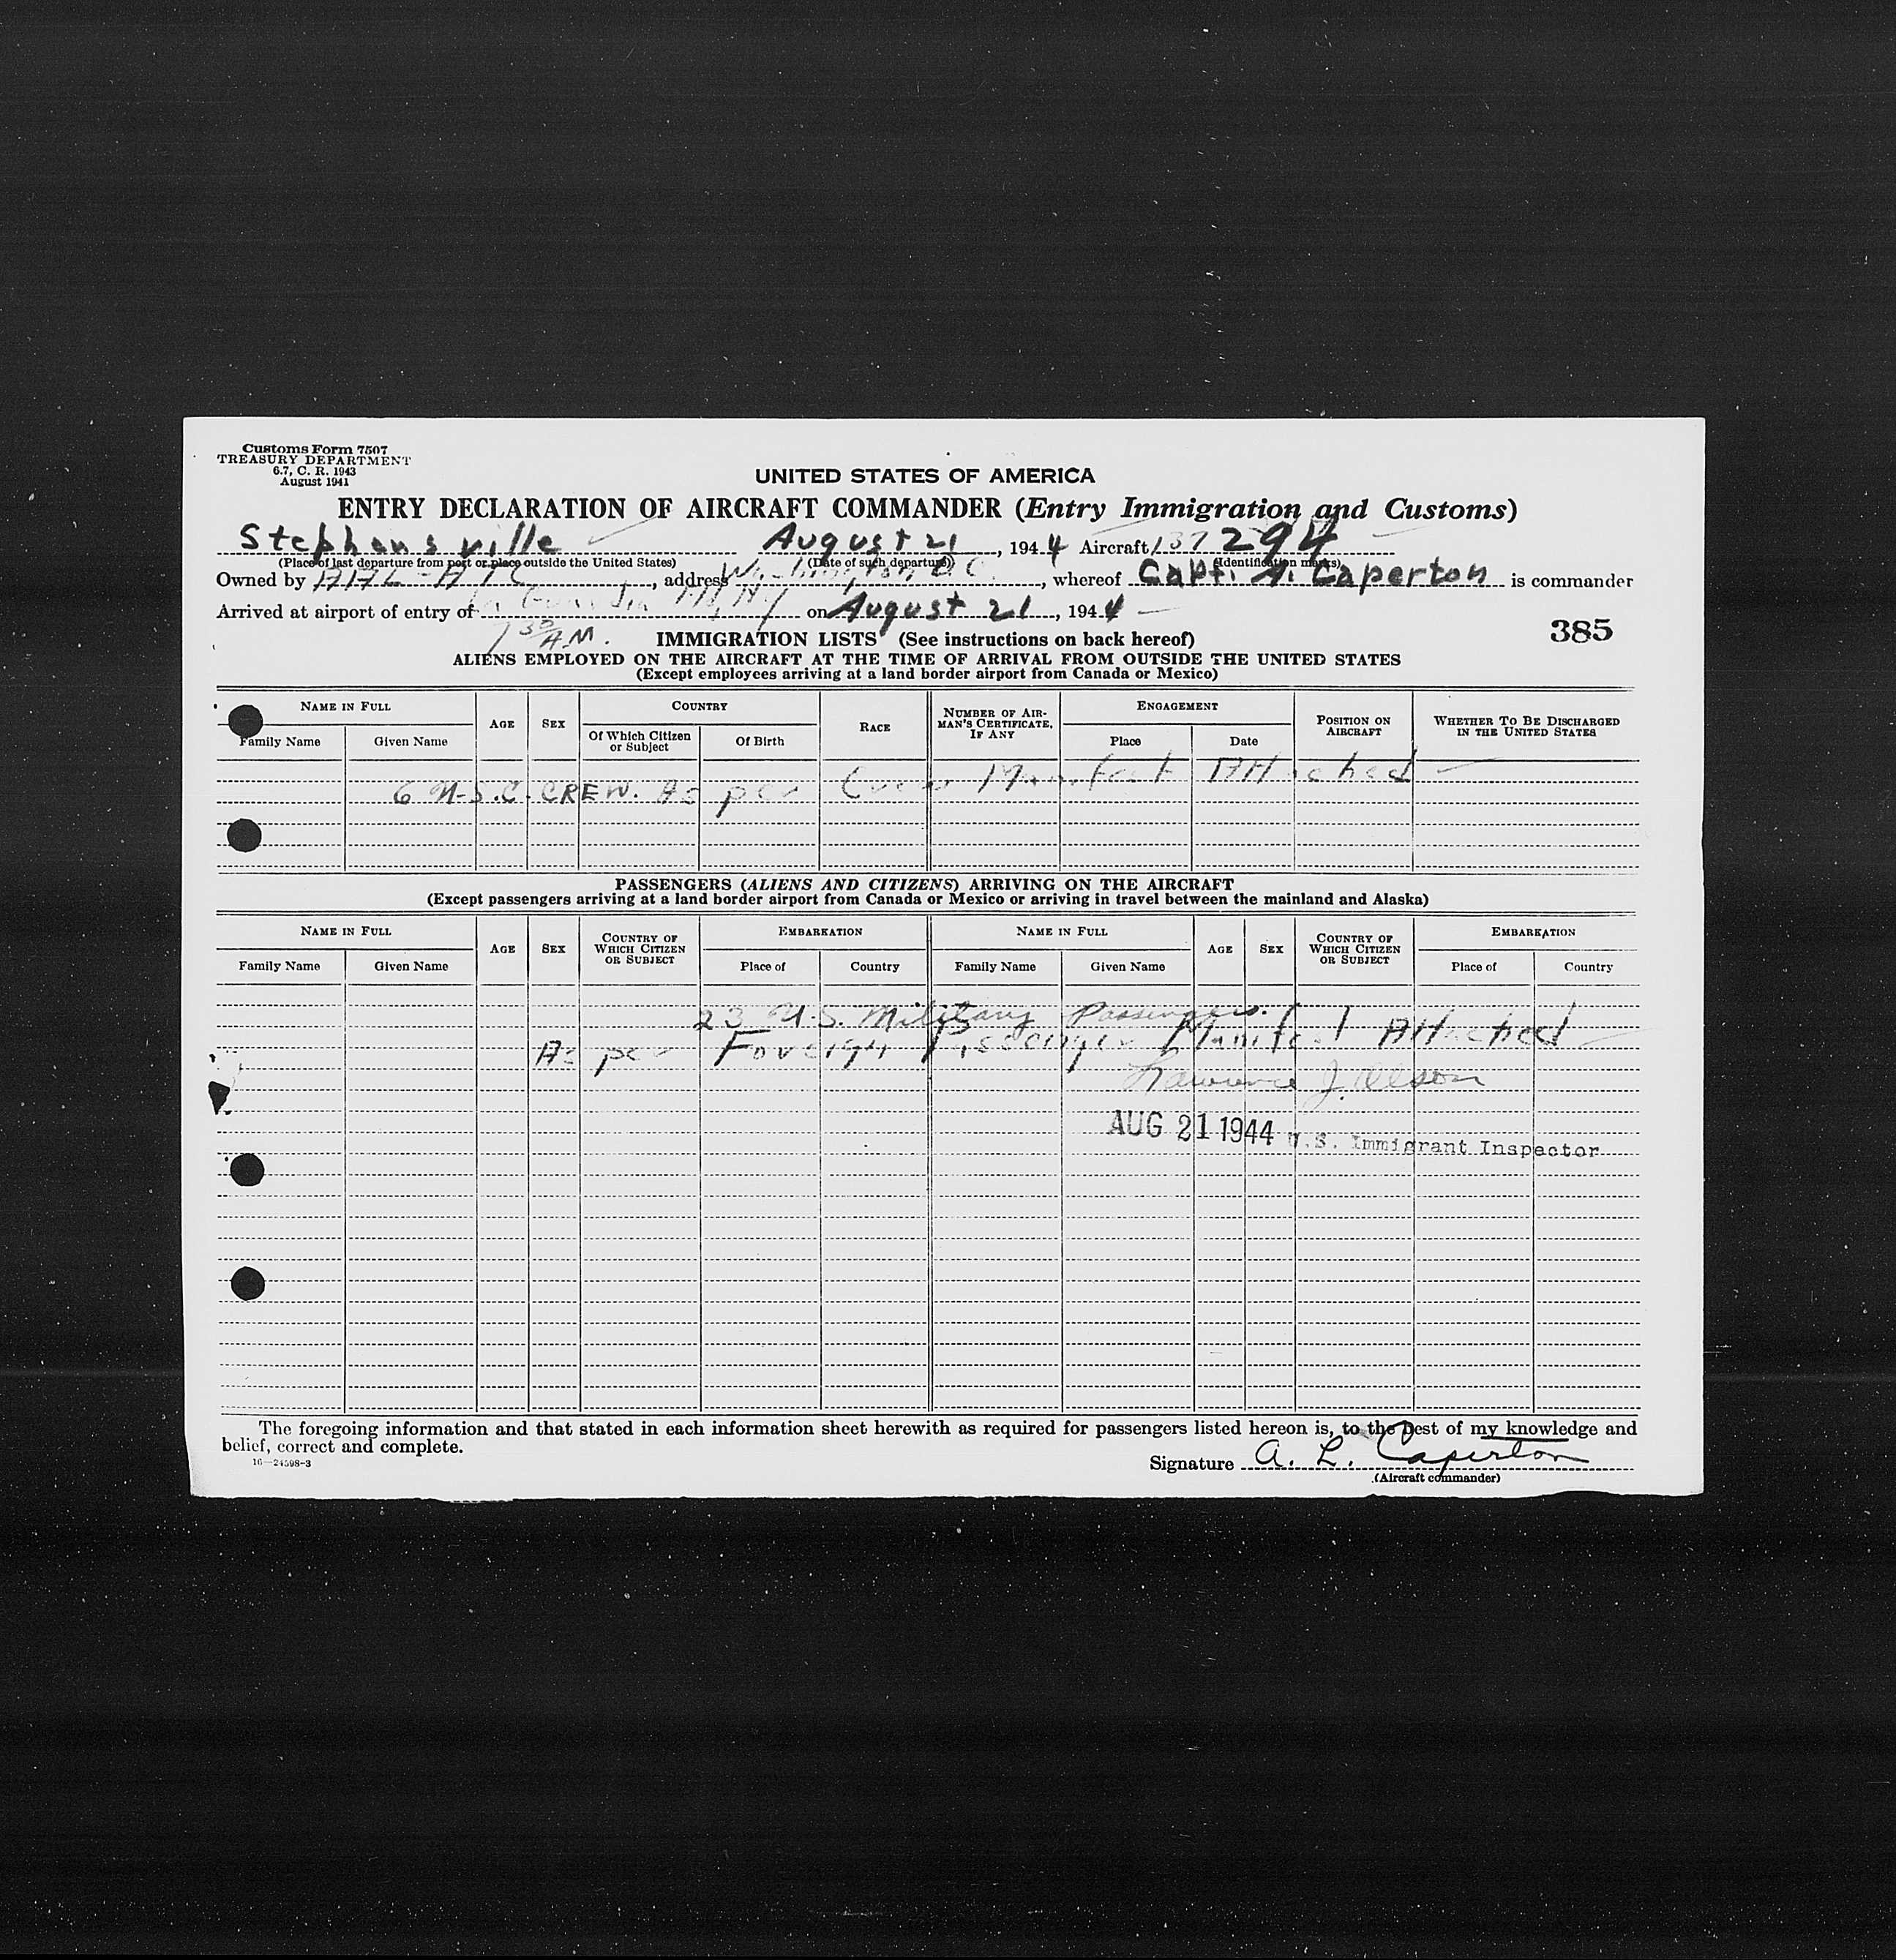 Customs Form 7507
TREASURY DEPARTMENT
6.7, C. R. 1943
August 1941
UNITED STATES OF AMERICA
ENTRY DECLARATION OF AIRCRAFT COMMANDER (Entry Immigration and Customs)
Stephensville August 21, 1944 Aircraft 137294
(Place of last departure from port or place outside the United States) (Date of such departure) (Identification marks)
Owned by ATC, address Washington D.C., whereof Capt. A. Caperton is commander
Arrived at airport of entry of La Guardia on August 21, 1944
7 30 AM.
IMMIGRATION LISTS (See instructions on back hereof)
385
ALIENS EMPLOYED ON THE AIRCRAFT AT THE TIME OF ARRIVAL FROM OUTSIDE THE UNITED STATES
(Except employees arriving at a land border airport from Canada or Mexico)
NAME IN FULL AGE SEX COUNTRY RACE NUMBER OF AIRMAN'S CERTIFICATE, IF ANY ENGAGEMENT POSITION ON AIRCRAFT WHETHER TO BE DISCHARGED IN THE UNITED STATES
Family Name Given Name Of Which Citizen or Subject Of Birth Place Date
6 U.S.C. CREW. As per Crew Manifest Attached
PASSENGERS (ALIENS AND CITIZENS) ARRIVING ON THE AIRCRAFT
(Except passengers arriving at a land border airport from Canada or Mexico or arriving in travel between the mainland and Alaska)
NAME IN FULL AGE SEX COUNTRY OF WHICH CITIZEN OR SUBJECT EMBARKATION NAME IN FULL AGE SEX COUNTRY OF WHICH CITIZEN OR SUBJECT EMBARKATION
Family Name Given Name Place of Country Family Name Given Name Place of Country
23 U.S. Military Passengers.
As per Foreign Passenger Manifest Attached
Lawrence J. Olson
AUG 21 1944 U.S. Immigrant Inspector
The foregoing information and that stated in each information sheet herewith as required for passengers listed hereon is, to the best of my knowledge and
belief, correct and complete.
16—24598-3
Signature A. L. Caperton
(Aircraft commander)